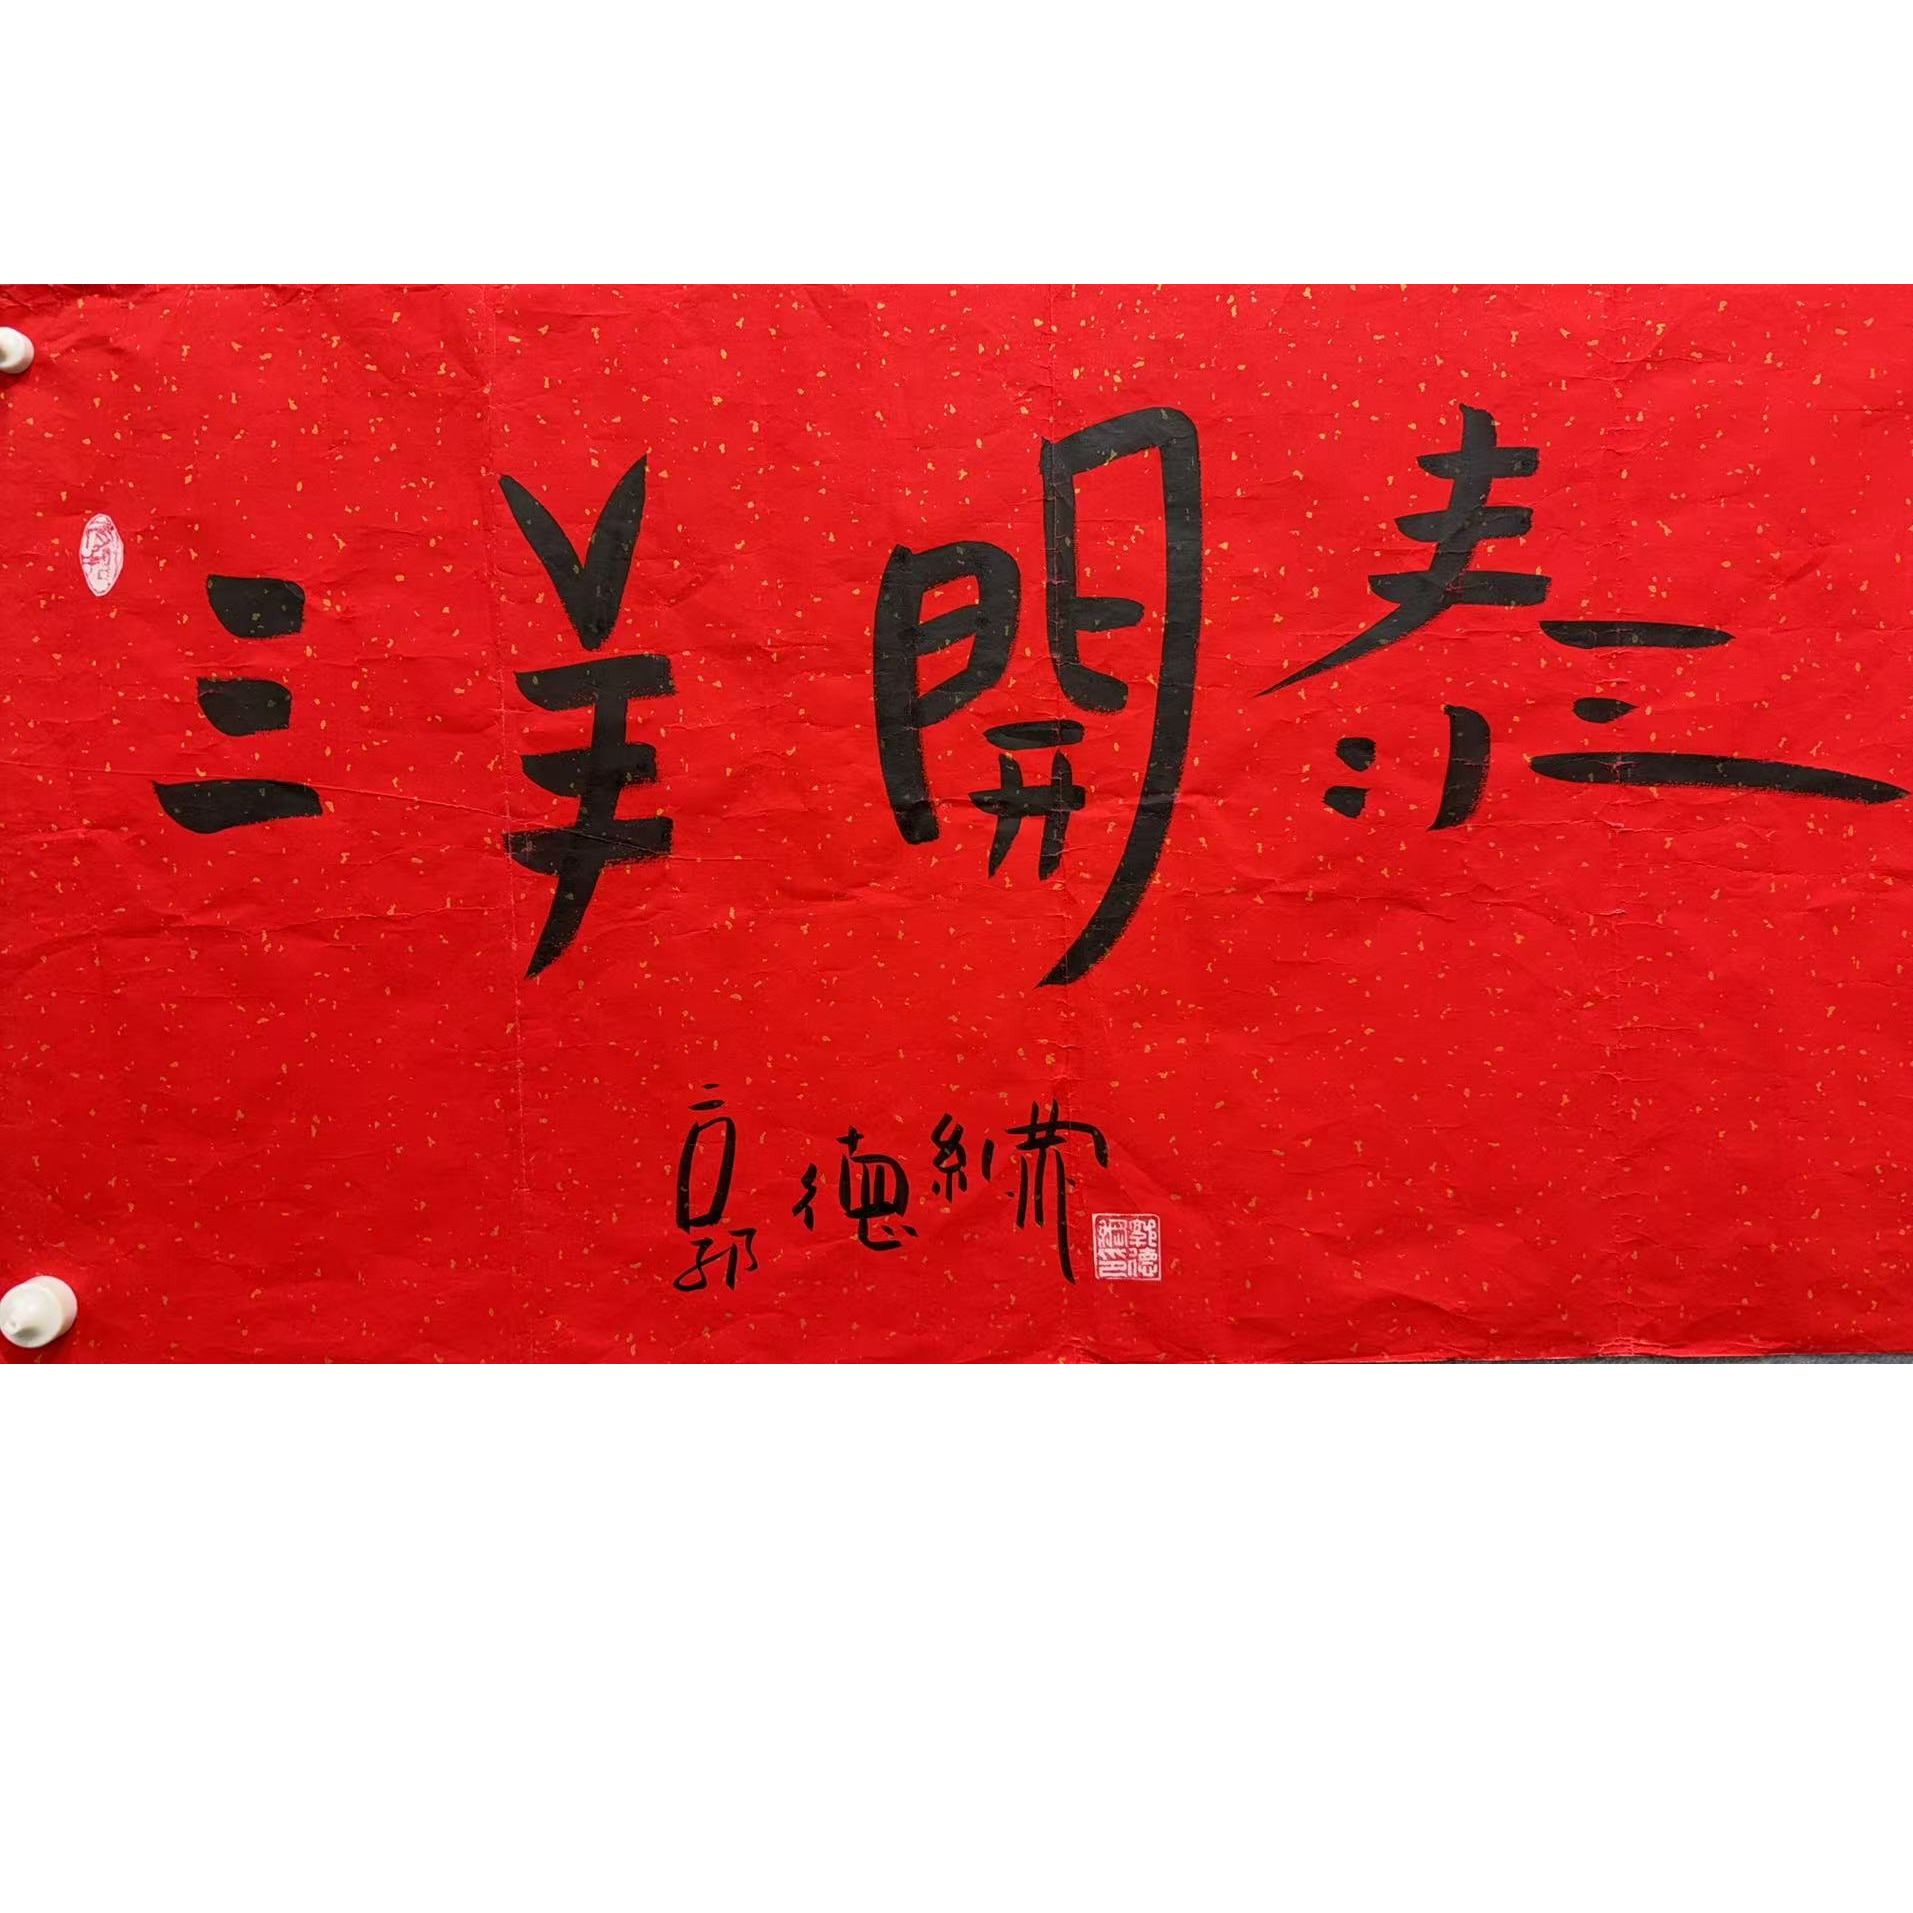 三羊開泰
郭德綱
郭德綱印